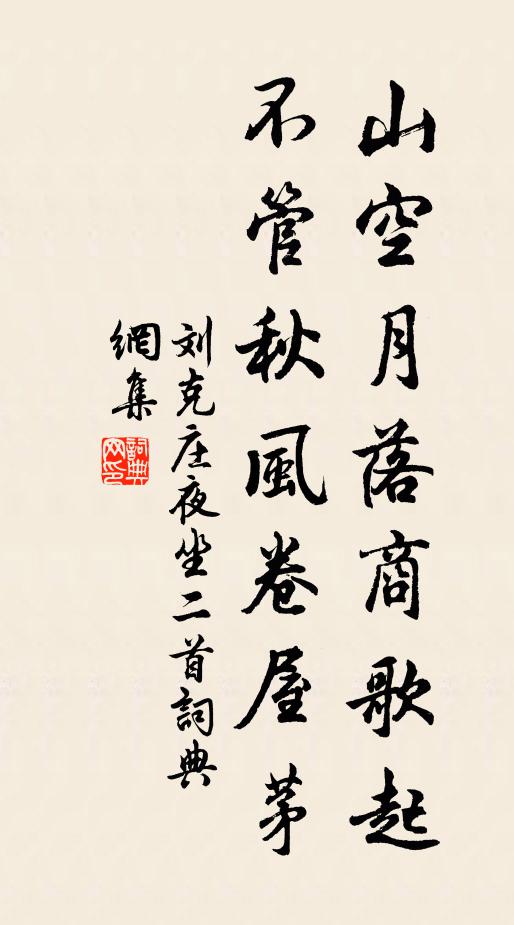 山空月落商歌起
不管秋風卷屋茅
刘克庄夜坐二首詞典
網集
詞典网印